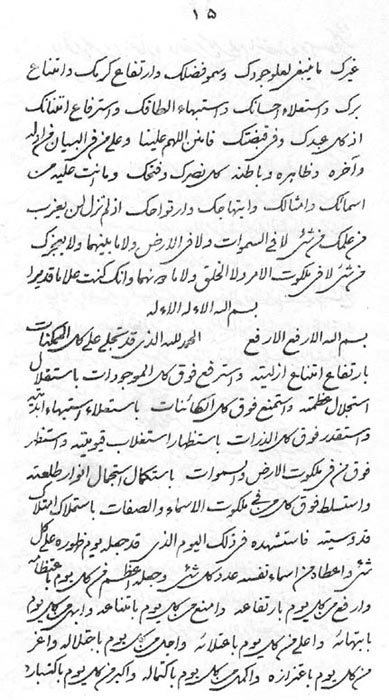 ١٥
غيرك ما ينبغي لعلو جودك وسمو فضلك وارتفاع كرمك وامتناع
برك واستعلاء احسانك واستبهاء الطافك واسترفاع امتنانك
از كل عبدك وفي قبضتك فامنن اللهم علينا وعلى من في البيان في اوله
وآخره وظاهره وباطنه كل نصرك وفتحك وما انت عليه من
اسمائك وامثالك وابتهاجك وارتواحك اذ لم تزل لن يعزب
من علمك من شئ لا في السموات ولا في الارض ولا ما بينهما ولا يعجزك
من شئ لا في ملكوت الامر ولا الخلق ولا ما دونهما وانك كنت علاما قديرا
بسم الله الاوله الاوله
بسم الله الارفع الارفع الحمد لله الذي قد تجلى على كل الممكنات
بارتفاع امتناع ازليته واسترفع فوق كل الموجودات باستقلال
استجلال عظمته واستمنع فوق كل الكائنات باستعلاء استبهاء ابديته
واستقدر فوق كل الذرات باستظهار قيوميته واستظهر
فوق من في ملكوت الارض والسموات باستكمال استجمال انوار طلعته
واستسلط فوق كل من في ملكوت الاسماء والصفات باستملاك
قدوسيته فاستشهده في ذلك اليوم الذي قد جعله يوم ظهوره على كل
شئ واعطاه من اسماء نفسه عدد كل شئ وجعله اعظم من كل يوم باعتظامه
وارفع من كل يوم بارتفاعه وامنع من كل يوم بامتناعه وابهى من كل يوم
بابتهائه واعلى من كل يوم باعتلائه واجل من كل يوم باجتلاله واعز
من كل يوم باعتزازه واكمل من كل يوم باكتماله واكبر من كل يوم باكتباره